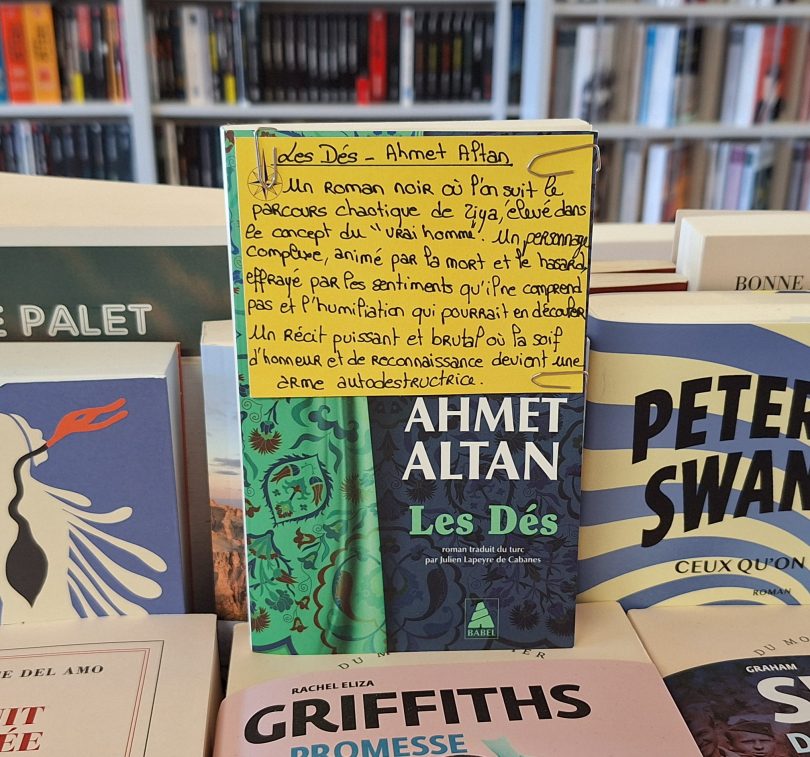 Les Dés - Ahmet Altan
Un roman noir où l'on suit le
parcours chaotique de Ziya, élevé dans
le concept du "vrai homme". Un personnage
complexe, animé par la mort et le hasard,
effrayé par les sentiments qu'il ne comprend
pas et l'humiliation qui pourrait en découler.
Un récit puissant et brutal où la soif
d'honneur et de reconnaissance devient une
arme autodestructrice.
AHMET
ALTAN
Les Dés
roman traduit du turc
par Julien Lapeyre de Cabanes
BABEL
E PALET
BONNE
PETER
SWAN
CEUX QU'ON
ROMAN
E DEL AMO
UIT
ÉE
DU MO
ER
RACHEL ELIZA
GRIFFITHS
PROMESSE
DU MO
GRAHAM
S
D